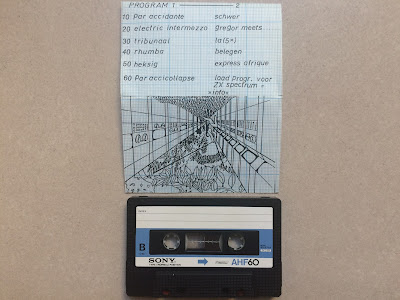 PROGRAM 1 — 2
10 Par accidante schwer
20 electric intermezzo gregor meets
30 tribunaal 1a(5*)
40 rhumba belegen
50 heksig express afrique
60 Par accicollapse laad progr. voor
ZX spectrum +
"info"
B
SONY
AHF60